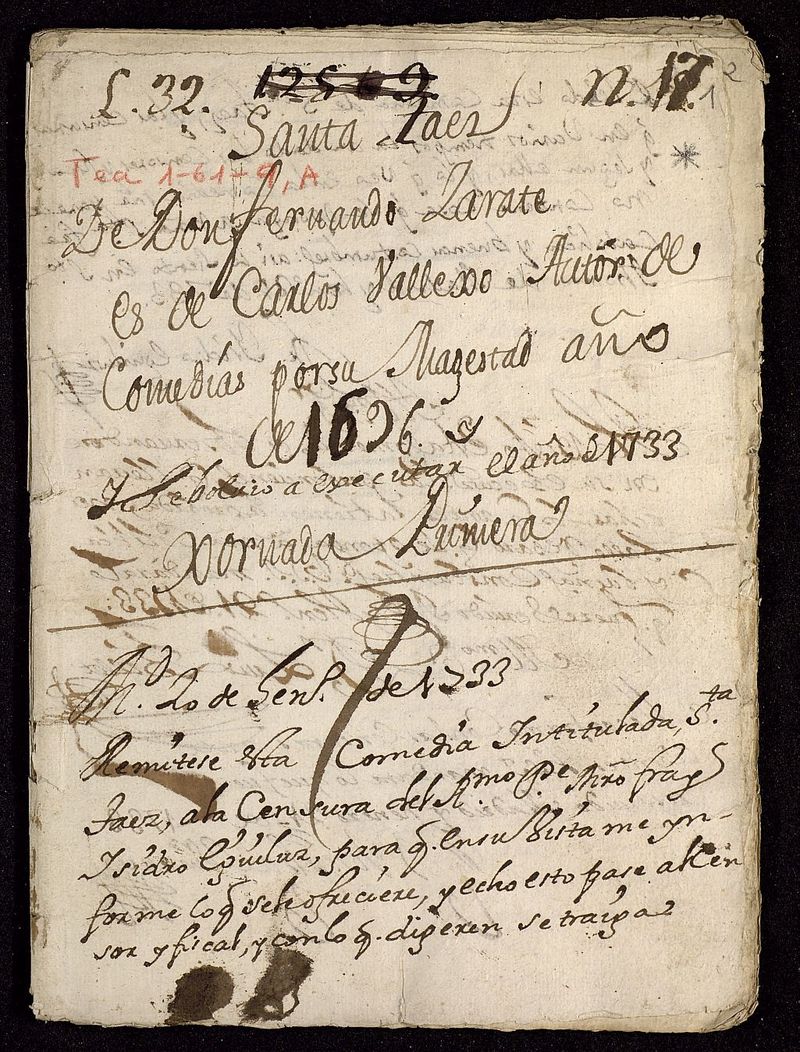 L. 32. 12569 n. 17.
1
2
Santa Taez
Tea 1-61-9, A
De Don fernando Zarate
es de Carlos Vallexo Autor de
Comedias por su Magestad año
de 1696. y
Y Se bolvio a execuctar el año d 1733
Xornada Primera
Md. 20 de Henº. de 1733
Remitese esta Comedia Intitulada, Sta.
Taez, ala Censura del Rmo Pe Mro fray
Isidro para q. en su Vista me yn-
forme lo q se le ofreciere, y echo esto pase al Cen
sor y fiscal, y con lo q. digeren se traiga